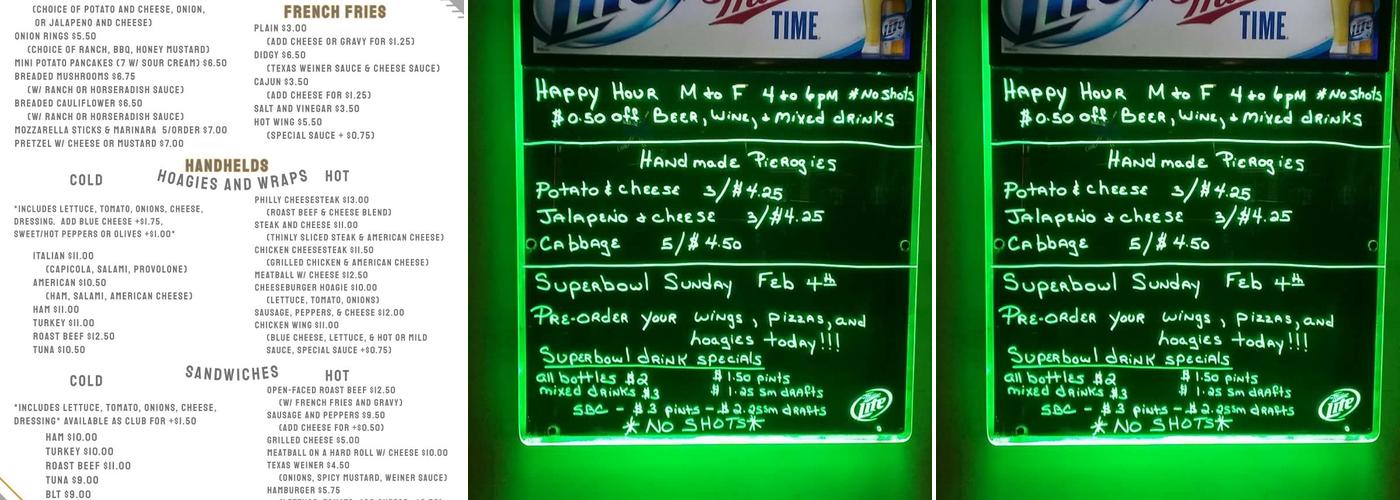 (CHOICE OF POTATO AND CHEESE, ONION,
OR JALAPENO AND CHEESE)
ONION RINGS $5.50
(CHOICE OF RANCH, BBQ, HONEY MUSTARD)
MINI POTATO PANCAKES (7 W/ SOUR CREAM) $6.50
BREADED MUSHROOMS $6.75
(W/ RANCH OR HORSERADISH SAUCE)
BREADED CAULIFLOWER $6.50
(W/ RANCH OR HORSERADISH SAUCE)
MOZZARELLA STICKS & MARINARA 5/ORDER $7.00
PRETZEL W/ CHEESE OR MUSTARD $7.00
FRENCH FRIES
PLAIN $3.00
(ADD CHEESE OR GRAVY FOR $1.25)
DIDGY $6.50
(TEXAS WEINER SAUCE & CHEESE SAUCE)
CAJUN $3.50
(ADD CHEESE FOR $1.25)
SALT AND VINEGAR $3.50
HOT WING $5.50
(SPECIAL SAUCE + $0.75)
HANDHELDS
HOAGIES AND WRAPS
COLD
*INCLUDES LETTUCE, TOMATO, ONIONS, CHEESE,
DRESSING. ADD BLUE CHEESE +$1.75,
SWEET/HOT PEPPERS OR OLIVES +$1.00*
ITALIAN $11.00
(CAPICOLA, SALAMI, PROVOLONE)
AMERICAN $10.50
(HAM, SALAMI, AMERICAN CHEESE)
HAM $11.00
TURKEY $11.00
ROAST BEEF $12.50
TUNA $10.50
HOT
PHILLY CHEESESTEAK $13.00
(ROAST BEEF & CHEESE BLEND)
STEAK AND CHEESE $11.00
(THINLY SLICED STEAK & AMERICAN CHEESE)
CHICKEN CHEESESTEAK $11.50
(GRILLED CHICKEN & AMERICAN CHEESE)
MEATBALL W/ CHEESE $12.50
CHEESEBURGER HOAGIE $10.00
(LETTUCE, TOMATO, ONIONS)
SAUSAGE, PEPPERS, & CHEESE $12.00
CHICKEN WING $11.00
(BLUE CHEESE, LETTUCE, & HOT OR MILD
SAUCE, SPECIAL SAUCE +$0.75)
SANDWICHES
COLD
*INCLUDES LETTUCE, TOMATO, ONIONS, CHEESE,
DRESSING* AVAILABLE AS CLUB FOR +$1.50
HAM $10.00
TURKEY $10.00
ROAST BEEF $11.00
TUNA $9.00
BLT $9.00
HOT
OPEN-FACED ROAST BEEF $12.50
(W/ FRENCH FRIES AND GRAVY)
SAUSAGE AND PEPPERS $9.50
(ADD CHEESE FOR +$0.50)
GRILLED CHEESE $5.00
MEATBALL ON A HARD ROLL W/ CHEESE $10.00
TEXAS WEINER $4.50
(ONIONS, SPICY MUSTARD, WEINER SAUCE)
HAMBURGER $5.75
Lite
Miller
TIME
Happy Hour M to F 4 to 6pm #No Shots
$0.50 off Beer, Wine, + mixed drinks
Handmade Pierogies
Potato & cheese 3/$4.25
Jalapeno & cheese 3/$4.25
Cabbage 5/$4.50
Superbowl Sunday Feb 4th
Pre-order your wings, pizzas, and
hoagies today!!!
Superbowl drink specials
all bottles $2 $1.50 pints
mixed drinks $3 $1.25 sm drafts
SBC - $3 pints - $2.25 sm drafts
*NO SHOTS*
Lite
Lite
Miller
TIME
Happy Hour M to F 4 to 6pm #No Shots
$0.50 off Beer, Wine, + mixed drinks
Handmade Pierogies
Potato & cheese 3/$4.25
Jalapeno & cheese 3/$4.25
Cabbage 5/$4.50
Superbowl Sunday Feb 4th
Pre-order your wings, pizzas, and
hoagies today!!!
Superbowl drink specials
all bottles $2 $1.50 pints
mixed drinks $3 $1.25 sm drafts
SBC - $3 pints - $2.25 sm drafts
*NO SHOTS*
Lite